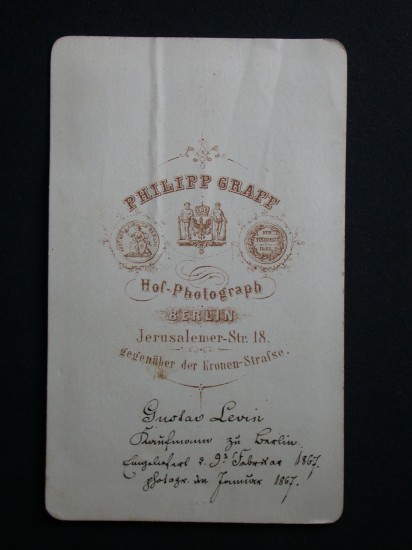 PHILIPP GRAFF
Hof-Photograph
BERLIN
Jerusalemer-Str. 18.
gegenüber der Kronen-Strafse.
Gustav Levin
Kaufmann zu Berlin.
Eingeliefert d. 9. Februar 1867.
photogr. im Januar 1867.